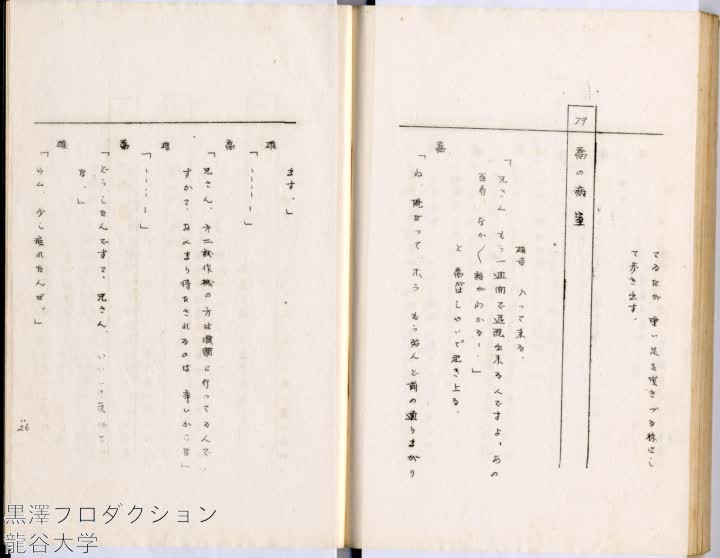 てゐたが 重い足を曳きづる様にし
て歩き出す。
79
喬の病室
雄吉 入って来る。
「兄さん もう一週間で退院出来るんですよ。あの
百寿 なか〱話がわかるー。」
と 喬がはしゃいで起き上る。
喬
「ね、腕だって ホラ もう殆んど前の通りまがり
ます。」
雄
「ーーーー」
喬
「兄さん、第二試作機の方は順調に行ってるんで
すか？、あんまり待たされるのは 辛いからな」
雄
「ーーーー」
喬
「どうしたんですか、兄さん、
な。」
雄
「うム、少し疲れたんだ。」
26
黒澤プロダクション
龍谷大学